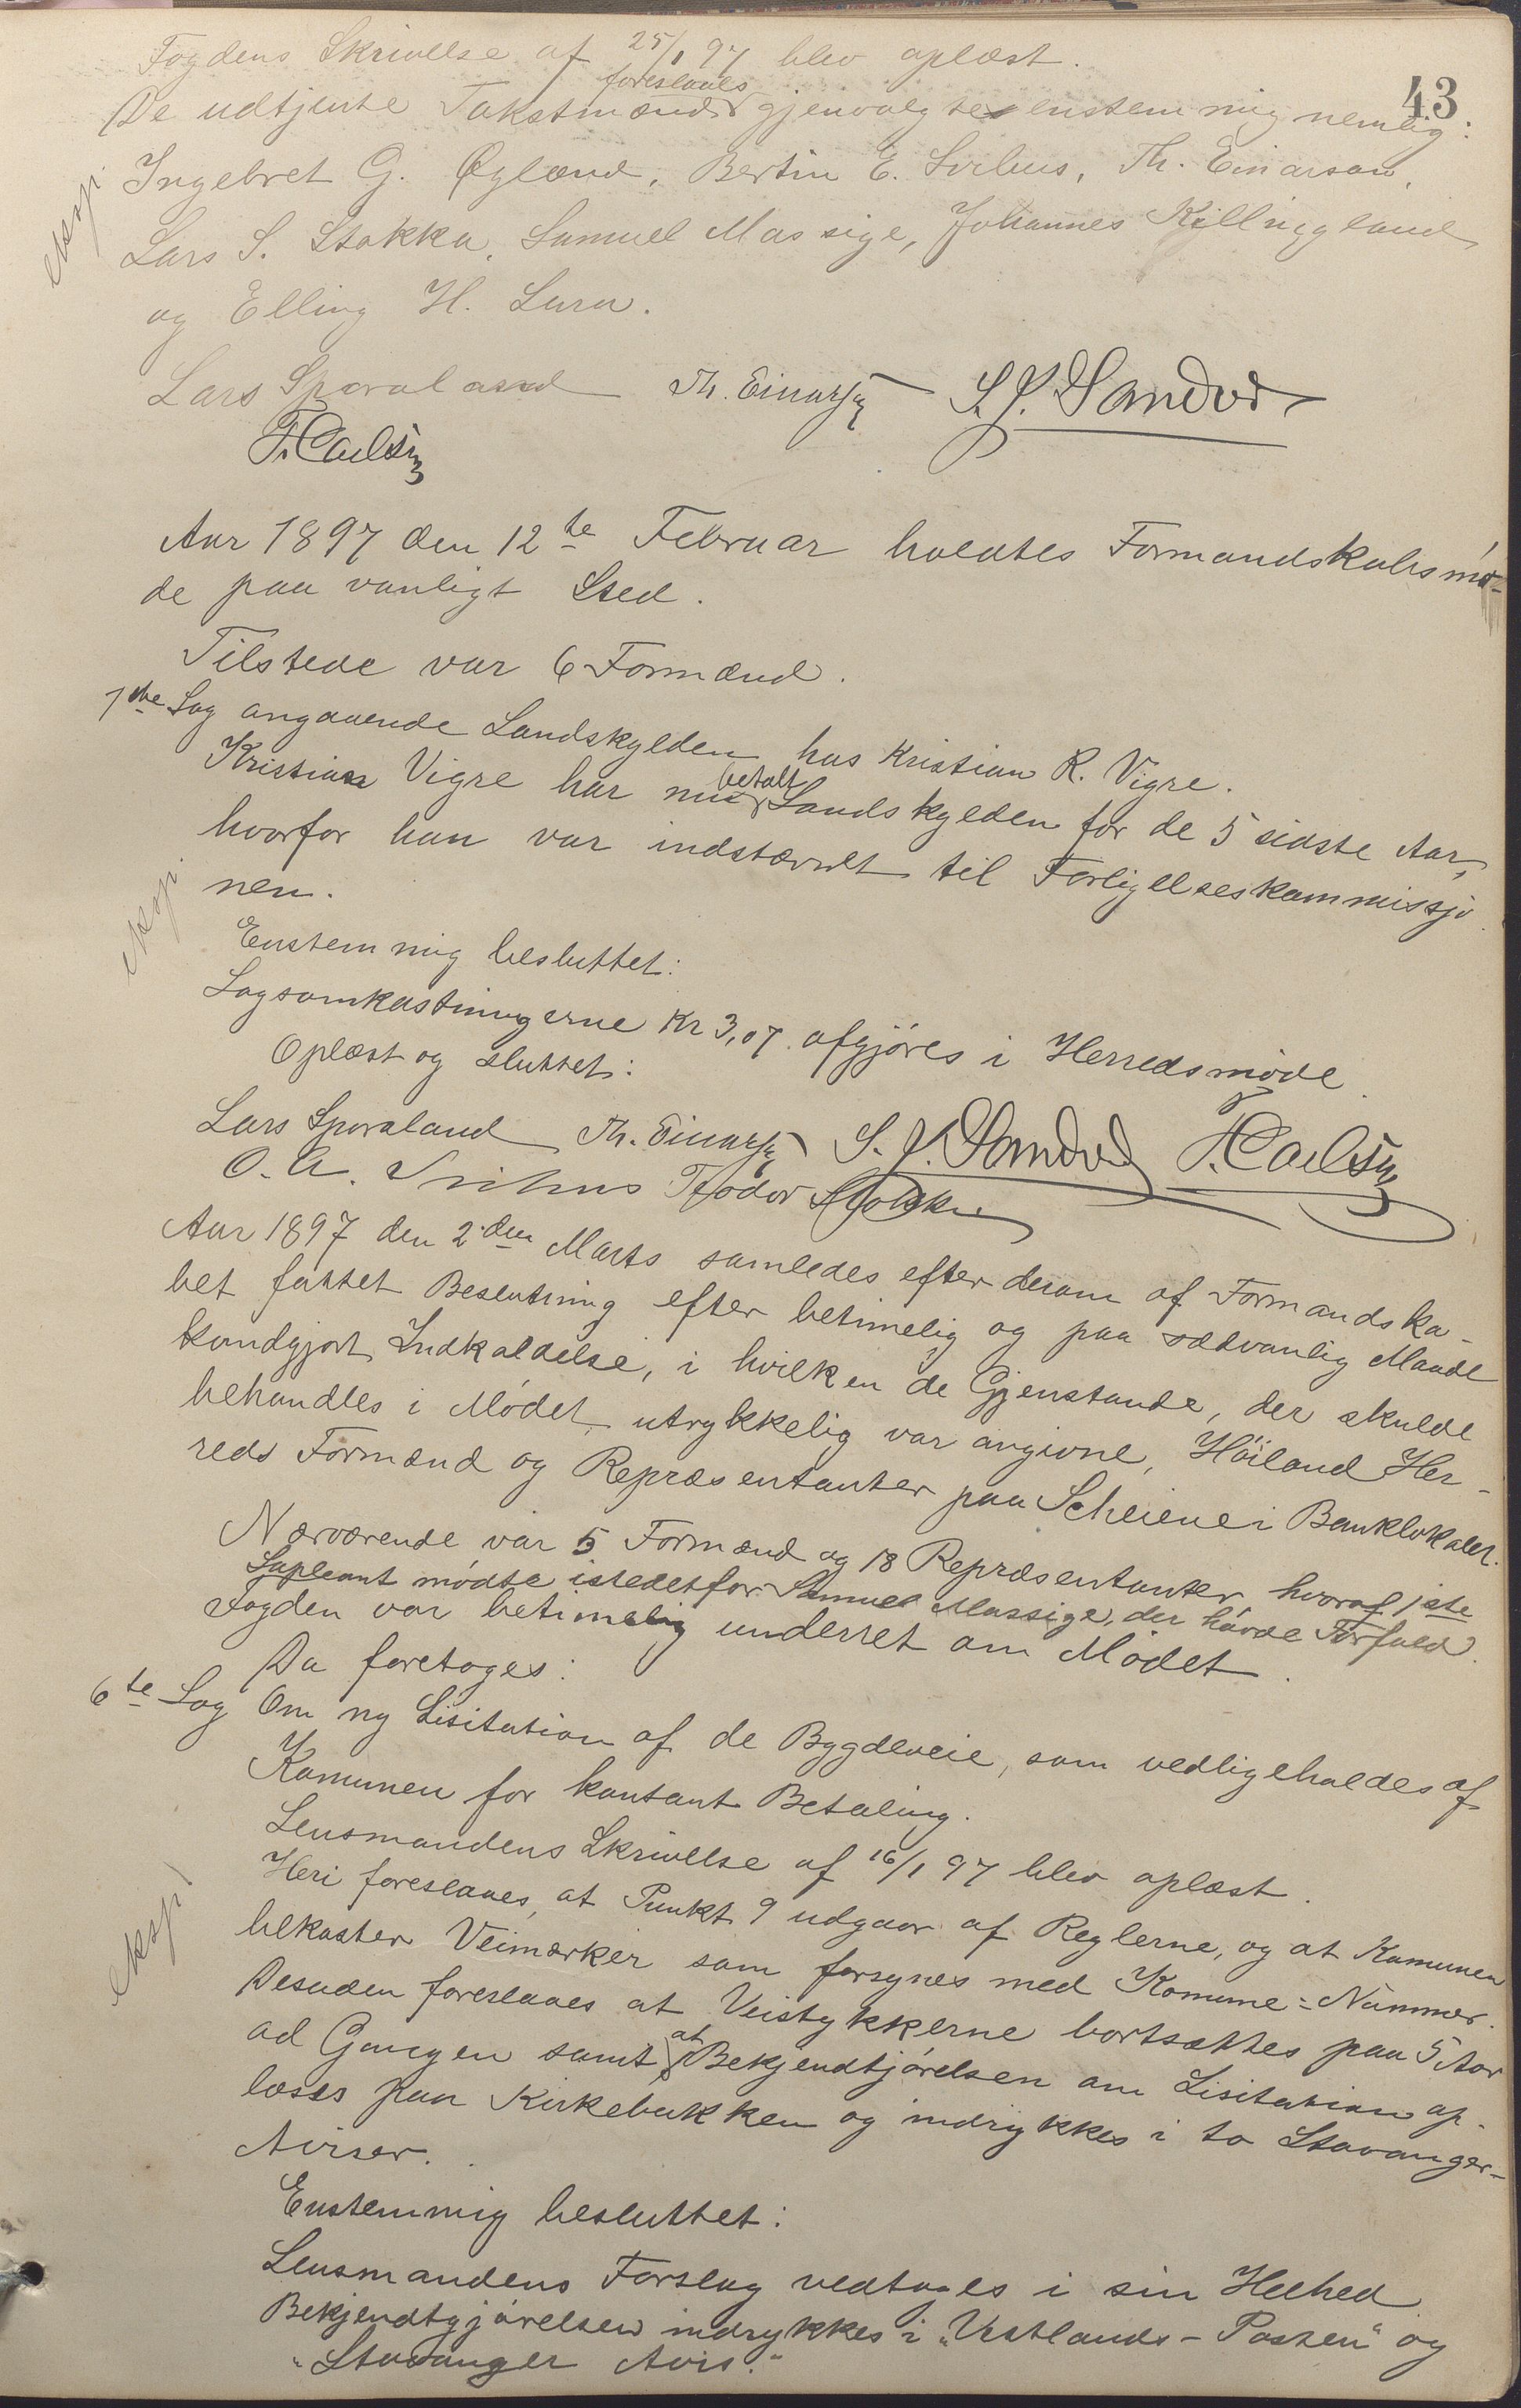 43
Fogdens Skrivelse af 25/1 97 blev oplæst.
De udtjente Takstmænd foreslaaes gjenvalgte enstemmig nemlig:
eksp.
Ingebret G. Øgland, Bertin E. Svihus, Th. Einarsen,
Lars S. Stokka, Samuel Massige, Johannes Kyllingland
og Elling H. Lura.
Lars Sporaland Th. Einarsen S. J. Sandved
F. Carlsen
Aar 1897 den 12te Februar holdtes Formandskabsmø-
de paa vanligt Sted.
Tilstede var 6 Formænd.
1ste Sag angaaende Landskylden hos Kristian R. Vigre.
Kristian Vigre har nu betalt Landskylden for de 5 sidste Aar,
hvorfor han var indstævnet til Forligelseskommissjo
nen.
eksp.
Enstemmig besluttet:
Sagsomkostningerne Kr 3,07 afgjøres i Herredsmøde.
Oplæst og sluttet:
Lars Sporaland Th. Einarsen S. J. Sandved F. Carlsen
O. A. Svihus Teodor Stokka
Aar 1897 den 2den Marts samledes efter derom af Formandska-
bet fattet Beslutning efter betimelig og paa sædvanlig Maade
kundgjort Indkaldelse, i hvilken de Gjenstande, der skulde
behandles i Mødet, utrykkelig var angivne, Høiland Her-
reds Formænd og Repræsentanter paa Scheiene i Banklokalet.
Nærværende var 5 Formænd og 18 Repræsentanter, hvoraf 1ste
Supleant mødte istedetfor Samuel Massige, der havde Forfald.
Fogden var betimelig underret om Mødet.
Da foretoges:
6te Sag Om ny Lisitation af de Bygdeveie, som vedligeholdes af
Komunen for kontant Betaling.
Lensmandens Skrivelse af 16/1 97 blev oplæst.
Heri foreslaaes, at Punkt 9 udgaar af Reglerne, og at Komunen
eksp.
bekoster Veimærker som forsynes med Komune=Nummer.
Desuden foreslaaes at Veistykkerne bortsættes paa 5 Aar
ad Gangen samt at Bekjendtjørelsen om Lisitation op-
læses paa Kirkebakken og indrykkes i to Stavanger-
Aviser.
Enstemmig besluttet:
Lensmandens Forslag vedtages i sin Helhed.
Bekjendtgjørelsen indrykkes i "Vestlands-Posten" og
"Stavanger Avis."